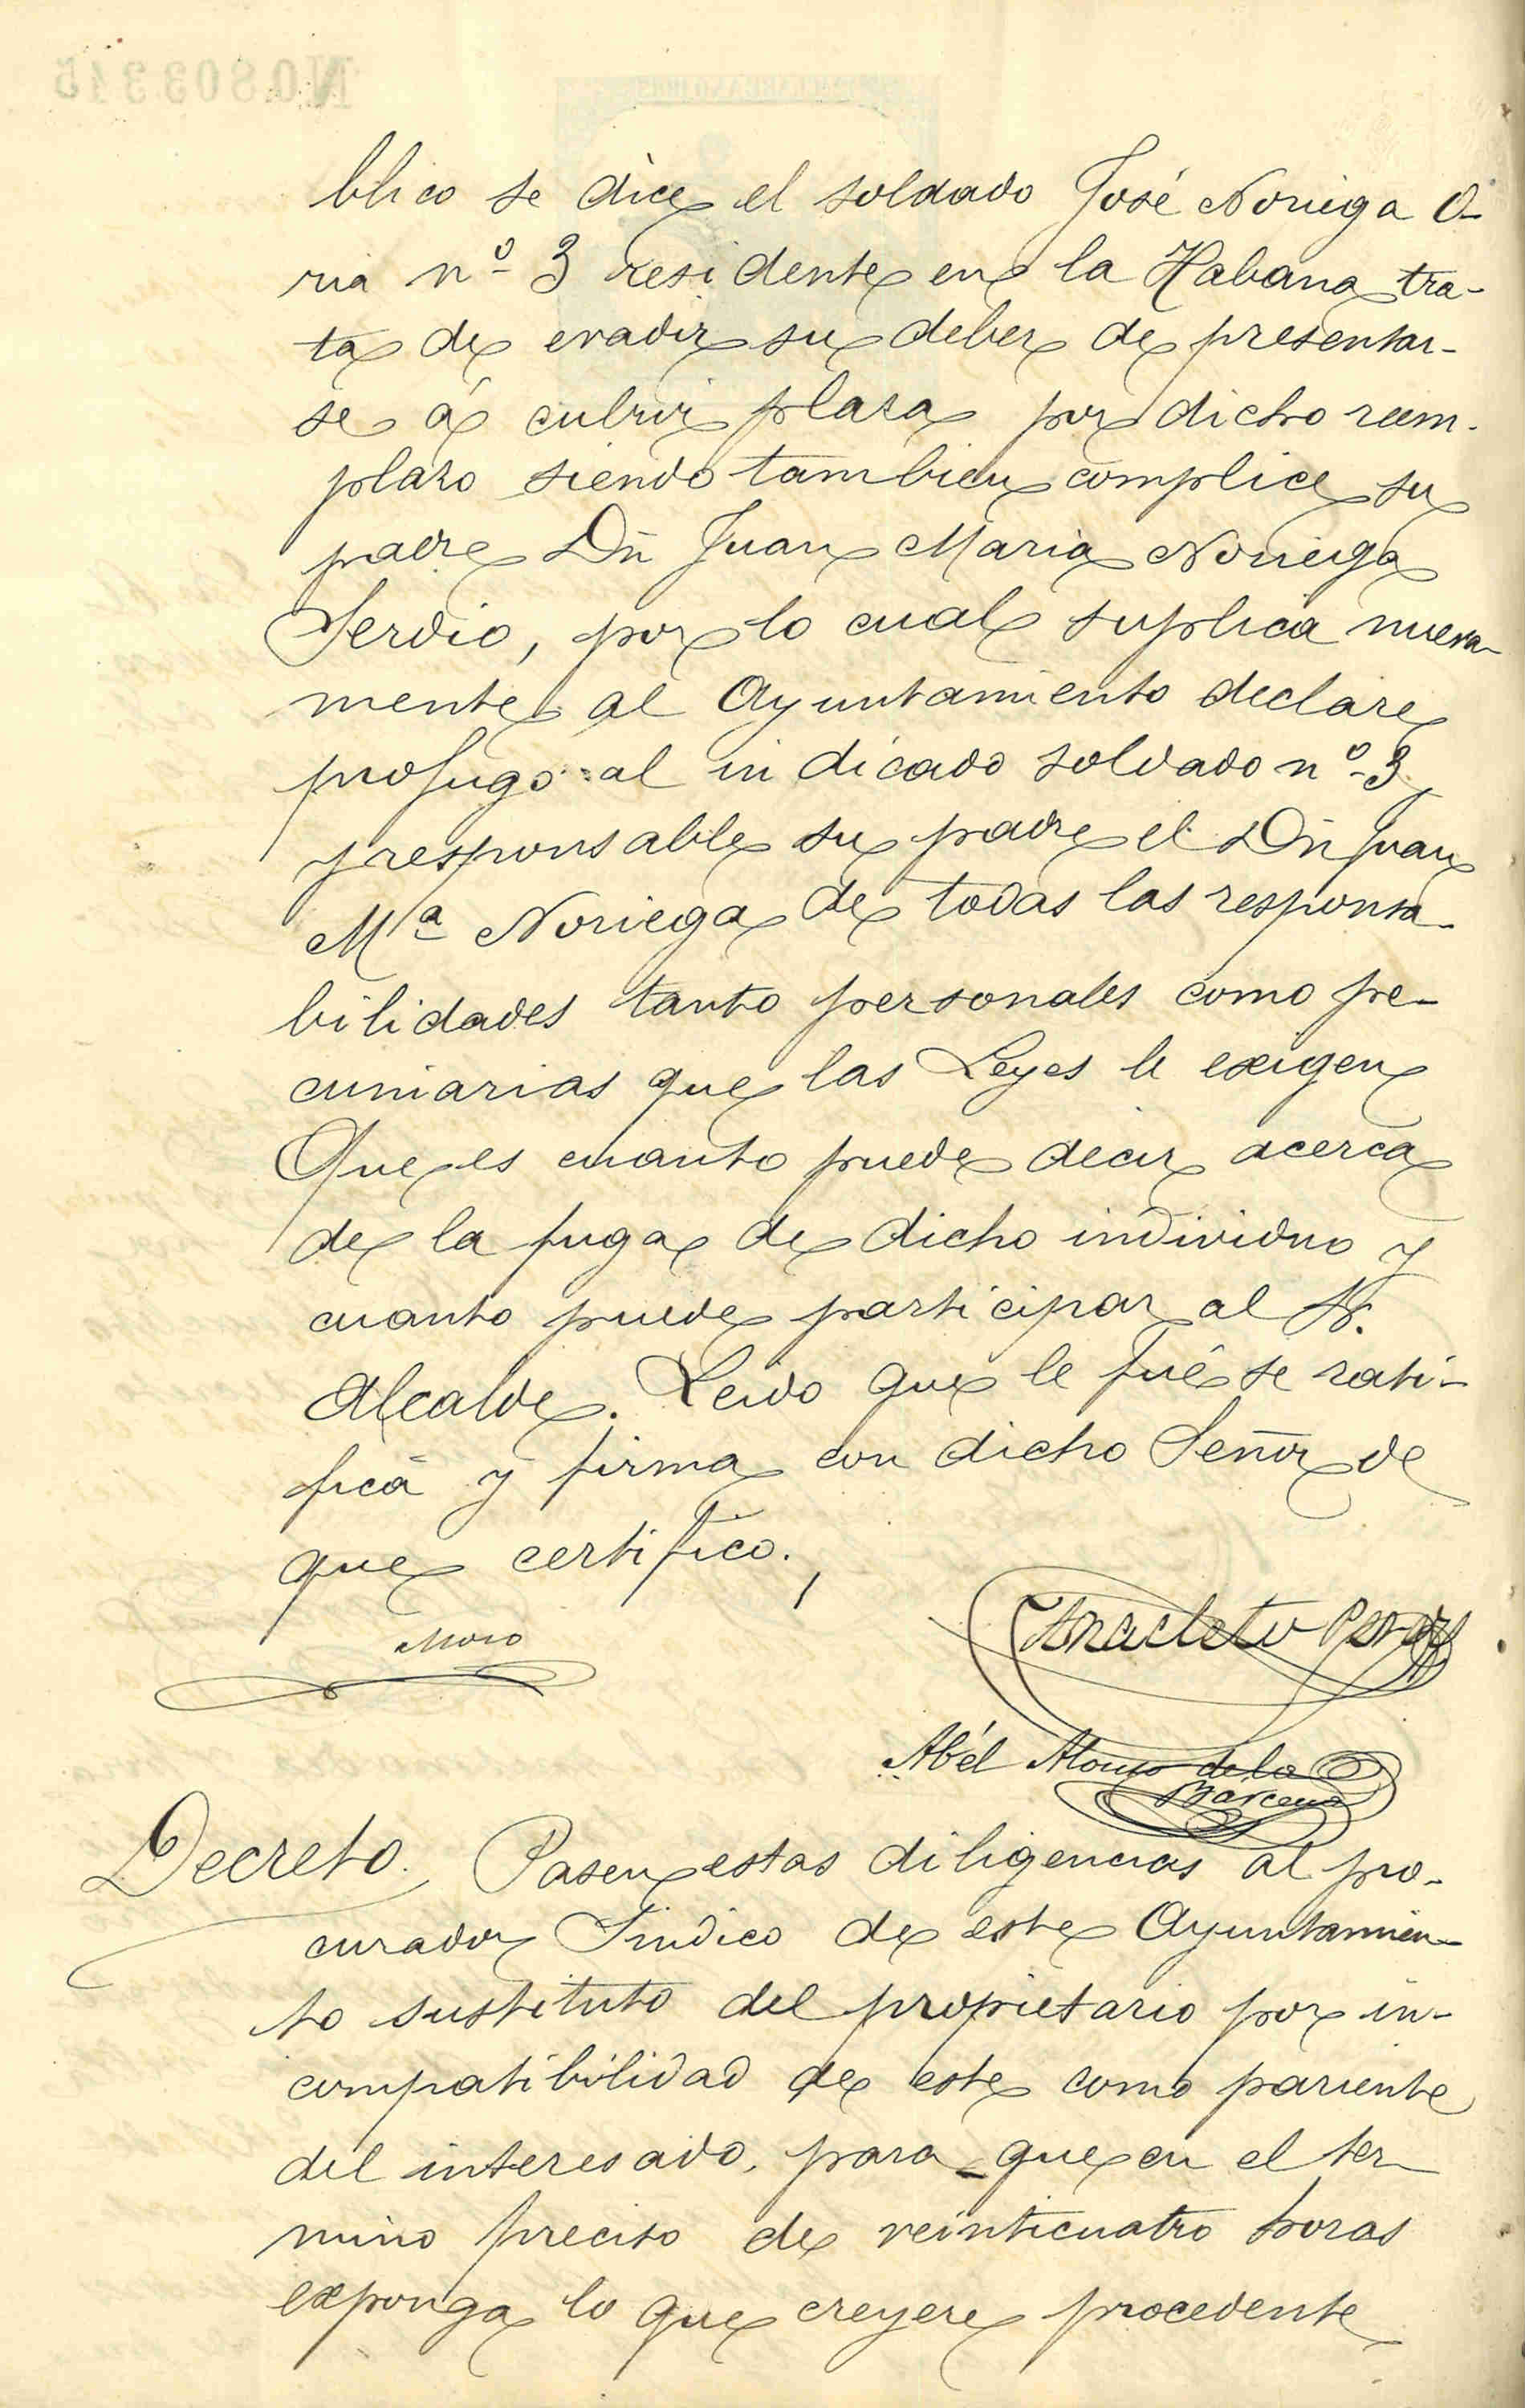 blico se dice el soldado José Noriega O-
ria nº 3 residente en la Habana tra-
ta de evadir su deber de presentar-
se á cubrir plaza por dicho reem-
plazo siendo tambien complice su
padre Dn Juan Maria Noriega
Servio, por lo cual suplica nueva-
mente al Ayuntamiento declare
profugo al indicado soldado nº 3
y responsable su padre el Dn Juan
Mª Noriega de todas las responsa-
bilidades tanto personales como pe-
cuniarias que las Leyes le exigen
Que es cuanto puede decir acerca
de la fuga de dicho individuo y
cuanto puede participar al Sr.
Alcalde. Leido que le fué se rati-
fica y firma con dicho Señor de
que certifico.
Moro
Anacleto Perez
Abél Alonso de la
Barcena
Decreto. Pasen estas diligencias al pro-
curador Sindico de este Ayuntamien-
to sustituto del propietario por in-
compatibilidad de este como pariente
del interesado, para que en el ter-
mino preciso de veinticuatro horas
exponga lo que creyere procedente
N0809315